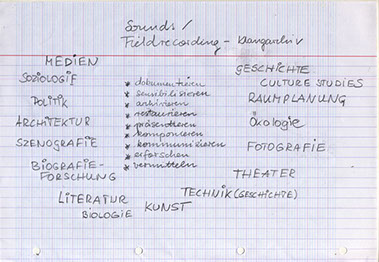 Sounds/
Fieldrecording - Klangarchiv
MEDIEN
SOZIOLOGIE
POLITIK
ARCHITEKTUR
SZENOGRAFIE
BIOGRAFIE-
FORSCHUNG
LITERATUR
BIOLOGIE
KUNST
* dokumentieren
* sensibilisieren
* archivieren
* restaurieren
* präsentieren
* komponieren
* kommunizieren
* erforschen
* vermitteln
GESCHICHTE
CULTURE STUDIES
RAUMPLANUNG
Ökologie
FOTOGRAFIE
THEATER
TECHNIK (GESCHICHTE)